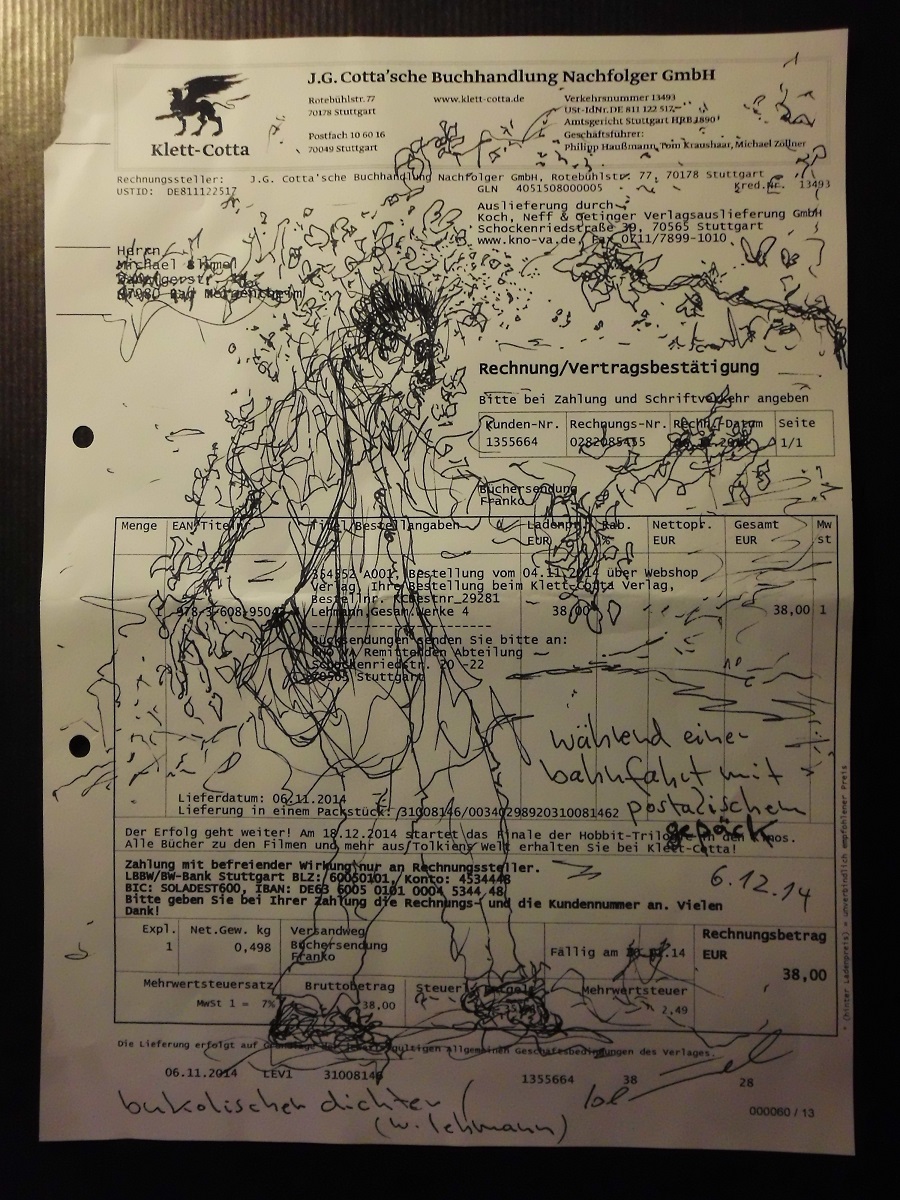 J.G. Cotta'sche Buchhandlung Nachfolger GmbH
Klett-Cotta
Rotebühlstr. 77
70178 Stuttgart
Postfach 10 60 16
70049 Stuttgart
www.klett-cotta.de
Verkehrsnummer 13493
USt-IdNr. DE 811 122 517
Amtsgericht Stuttgart HRB 1890
Geschäftsführer:
Philipp Haußmann, Tom Kraushaar, Michael Zöllner
Rechnungssteller: J.G. Cotta'sche Buchhandlung Nachfolger GmbH, Rotebühlstr. 77, 70178 Stuttgart
USTID: DE811122517 GLN 4051508000005 Kred.Nr. 13493
Auslieferung durch
Koch, Neff & Oetinger Verlagsauslieferung GmbH
Schockenriedstraße 39, 70565 Stuttgart
www.kno-va.de, Fax 0711/7899-1010
Herrn
Michael
Bad Mergentheim
Rechnung/Vertragsbestätigung
Bitte bei Zahlung und Schriftverkehr angeben
Kunden-Nr. Rechnungs-Nr. Rechn.-Datum Seite
1355664 0282085455 1/1
Büchersendung
Franko
Menge EAN/Titelnr Titel/Bestellangaben Ladenpr. Rab. Nettopr. Gesamt Mw
EUR % EUR EUR st
A001, Bestellung vom 04.11.2014 über Webshop
Verlag, Ihre Bestellung beim Klett-Cotta Verlag,
Bestellnr. KCBestnr_29281
978-3-608-9504 Lehmann,Gesan.Werke 4 38,00 38,00 1
Rücksendungen senden Sie bitte an:
KNO VA Remittenden Abteilung
Schockenriedstr. 20 -22
70565 Stuttgart
während einer
bahnfahrt mit
postalischem
gepäck
Lieferdatum: 06.11.2014
Lieferung in einem Packstück: 31008146/00340298920310081462
Der Erfolg geht weiter! Am 18.12.2014 startet das Finale der Hobbit-Trilogie in den Kinos.
Alle Bücher zu den Filmen und mehr aus Tolkiens Welt erhalten Sie bei Klett-Cotta!
Zahlung mit befreiender Wirkung nur an Rechnungssteller.
LBBW/BW-Bank Stuttgart BLZ: 60050101, Konto: 4534448
BIC: SOLADEST600, IBAN: DE63 6005 0101 0004 5344 48
Bitte geben Sie bei Ihrer Zahlung die Rechnungs- und die Kundennummer an. Vielen
Dank!
6.12.14
Expl. Net.Gew. kg Versandweg
1 0,498 Büchersendung
Franko
Fällig am .14
Rechnungsbetrag
EUR
38,00
Mehrwertsteuersatz Bruttobetrag Mehrwertsteuer
MwSt 1 = 7% 38,00 2,49
Die Lieferung erfolgt auf Grundlage der jeweils gültigen Allgemeinen Geschäftsbedingungen des Verlages.
06.11.2014 LEV1 31008146 1355664 38 28
bukolischer dichter /
(w. lehmann)
000060 / 13